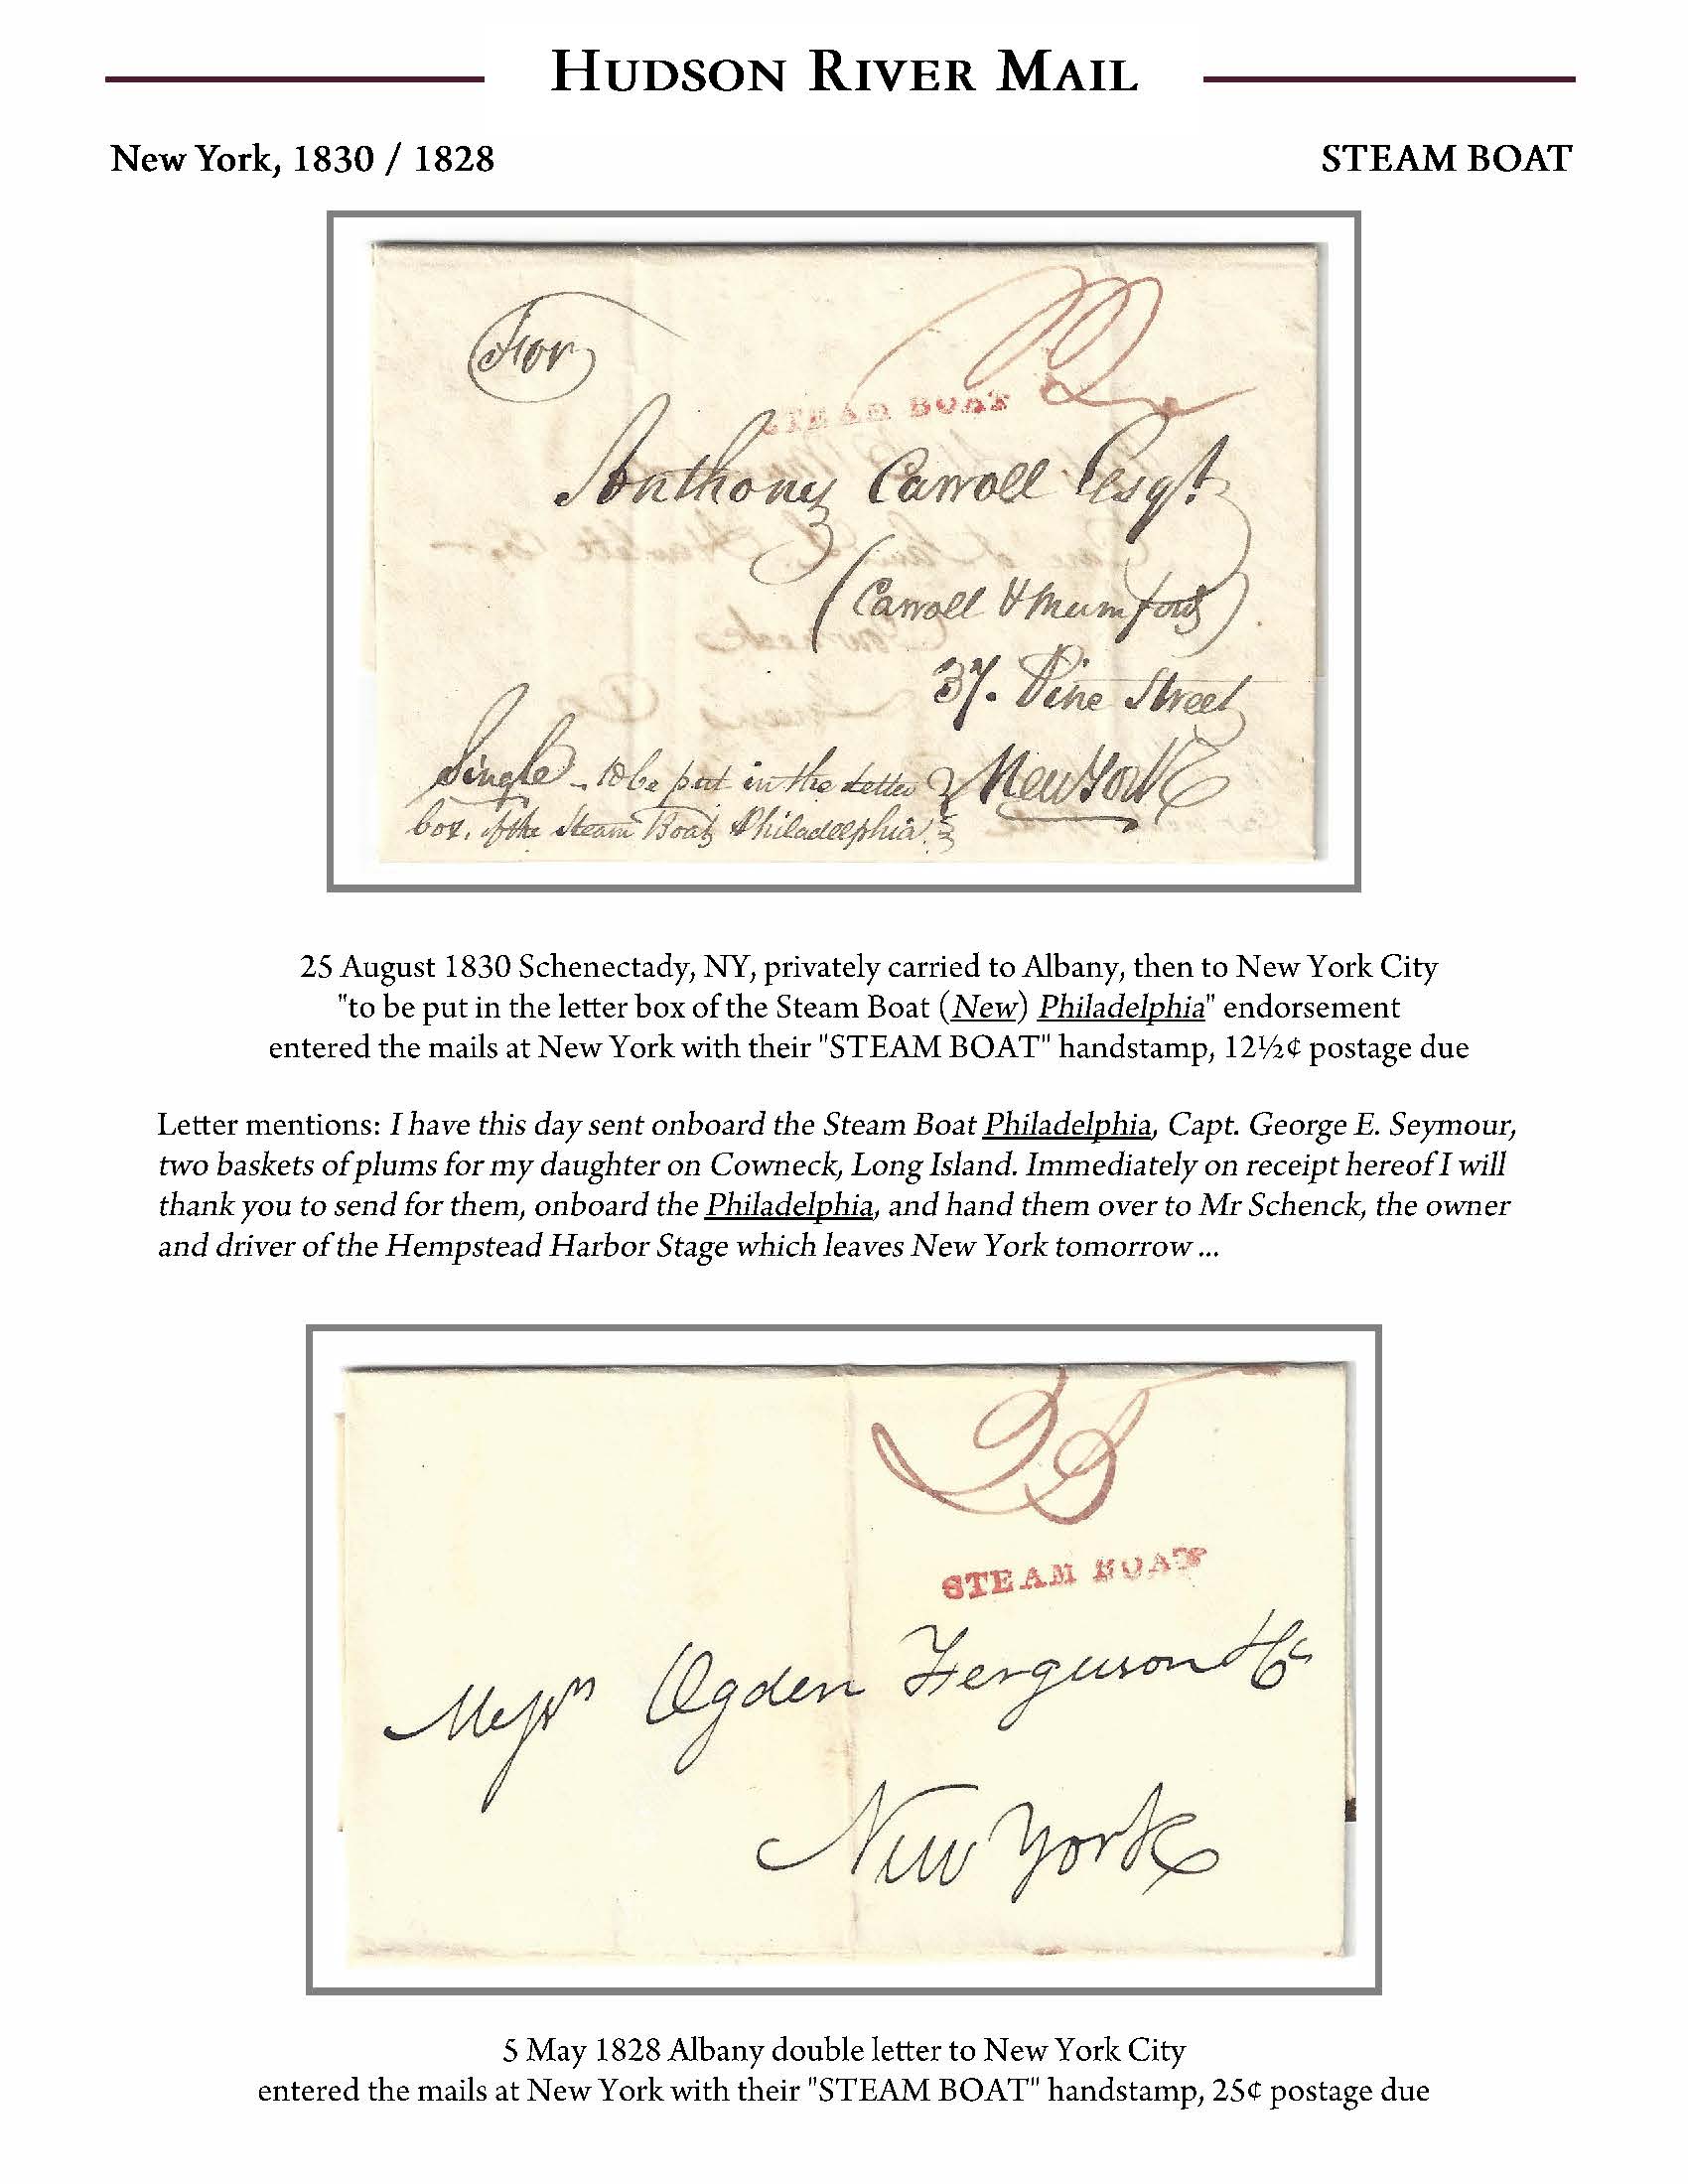 HUDSON RIVER MAIL
New York, 1830 / 1828
STEAM BOAT
For
STEAM BOAT
Anthony Carroll Esqr.
(Carroll & Mumford)
37. Pine Street
New York
Single - to be put in the Letter
box. of the Steam Boat Philadelphia.
25 August 1830 Schenectady, NY, privately carried to Albany, then to New York City
"to be put in the letter box of the Steam Boat (New) Philadelphia" endorsement
entered the mails at New York with their "STEAM BOAT" handstamp, 12½¢ postage due
Letter mentions: I have this day sent onboard the Steam Boat Philadelphia, Capt. George E. Seymour,
two baskets of plums for my daughter on Cowneck, Long Island. Immediately on receipt hereof I will
thank you to send for them, onboard the Philadelphia, and hand them over to Mr Schenck, the owner
and driver of the Hempstead Harbor Stage which leaves New York tomorrow ...
25
STEAM BOAT
Messrs Ogden Ferguson & Co
New York
5 May 1828 Albany double letter to New York City
entered the mails at New York with their "STEAM BOAT" handstamp, 25¢ postage due